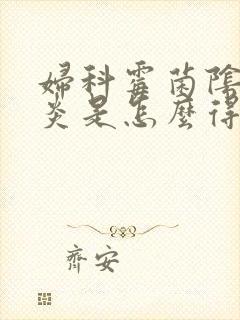 婦科霉菌陰
炎是怎麼得
齊安